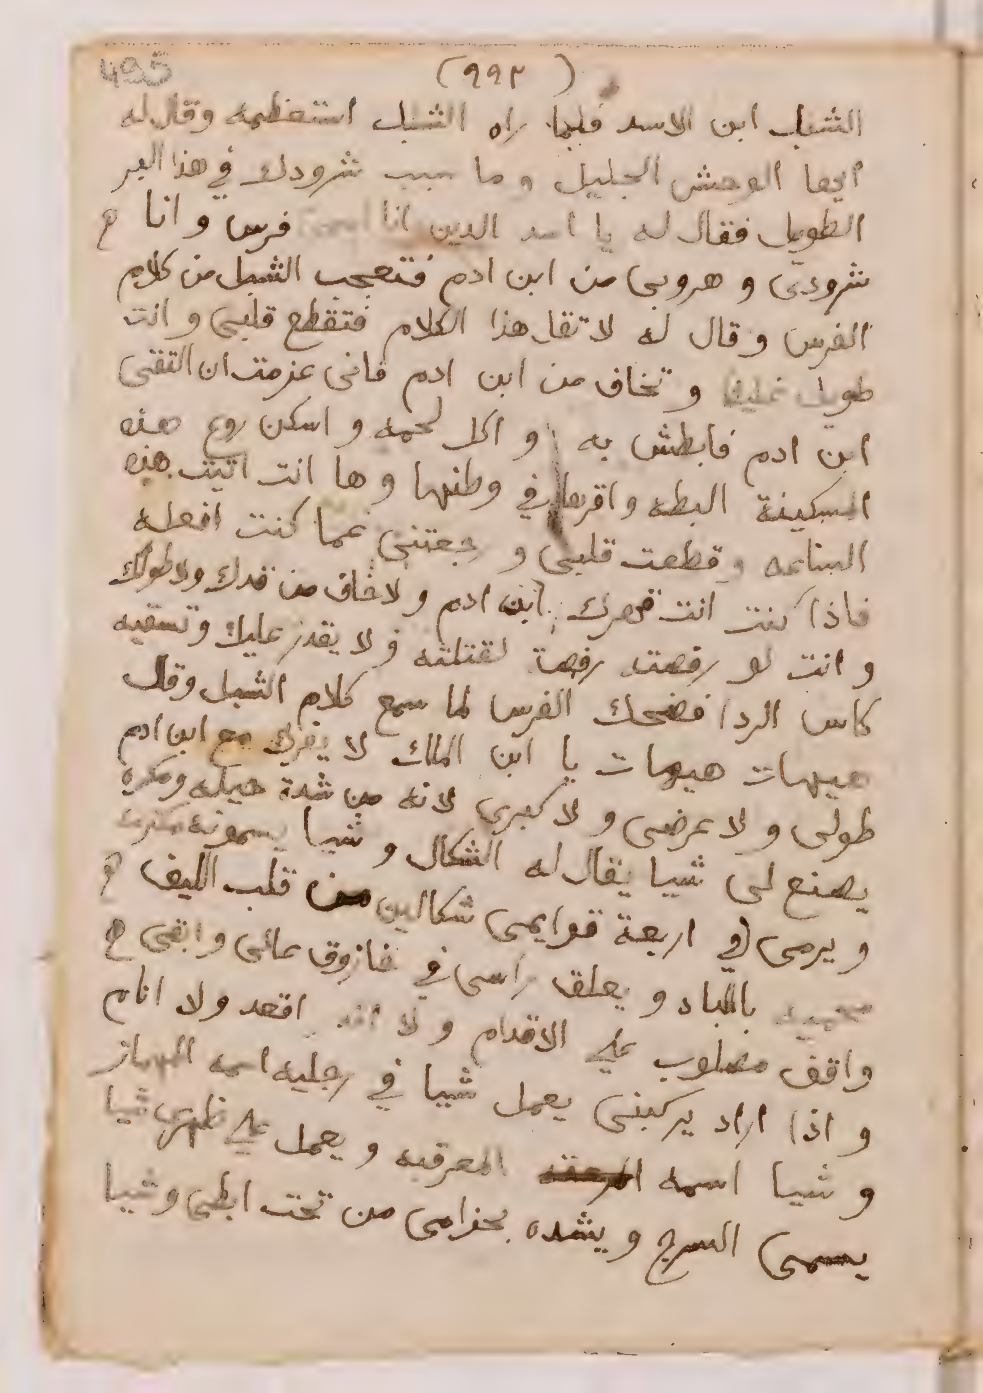 495
(٩٩٢)
الشبل ابن الاسد فلما راه الشبل استعظمه وقال له
ايها الوحش الجليل و ما سبب شرودك في هذا البر
الطويل فقال له يا اسد الدين انا فرس و انا
شرودى و هروبى من ابن ادم فتعجب الشبل من كلام
الفرس و قال له لا تقل هذا الكلام فتقطع قلبى و انت
طويل غليظ و تخاف من ابن ادم فانى عزمت ان التقى
ابن ادم فابطش به و اكل لحمه و اسكن روع هذه
المسكينة البطه و اقرها في وطنها و ها انت اتيت هذه
الساعه و قطعت قلبى و رجعتنى عما كنت افعله
فاذا كنت انت قهرك ابن ادم و لا خاف من قدك ولا طولك
و انت لو رفصته رفصة لقتلته و لا يقدر عليك و تسقيه
كاس الردا فضحك الفرس لما سمع كلام الشبل وقال
هيهات هيهات يا ابن الملك لا يغرك مع ابن ادم
طولى و لا عرضى و لا كبرى لانه من شدة حيله ومكره
يصنع لى شيا يقال له الشكال و شيا يسمونه
و يرمى في اربعة قوايمى شكالين من قلب الليف
بالباد و يعلق راسى في خازوق عالى و ابقى
واقف مصلوب على الاقدام و لا اقعد ولا انام
و اذا اراد يركبنى يعمل شيا في رجليه اسمه المهماز
و شيا اسمه المعرقيه و يعمل على ظهرى شيا
يسمى السرج و يشده بحزامى من تحت ابطى و شيا